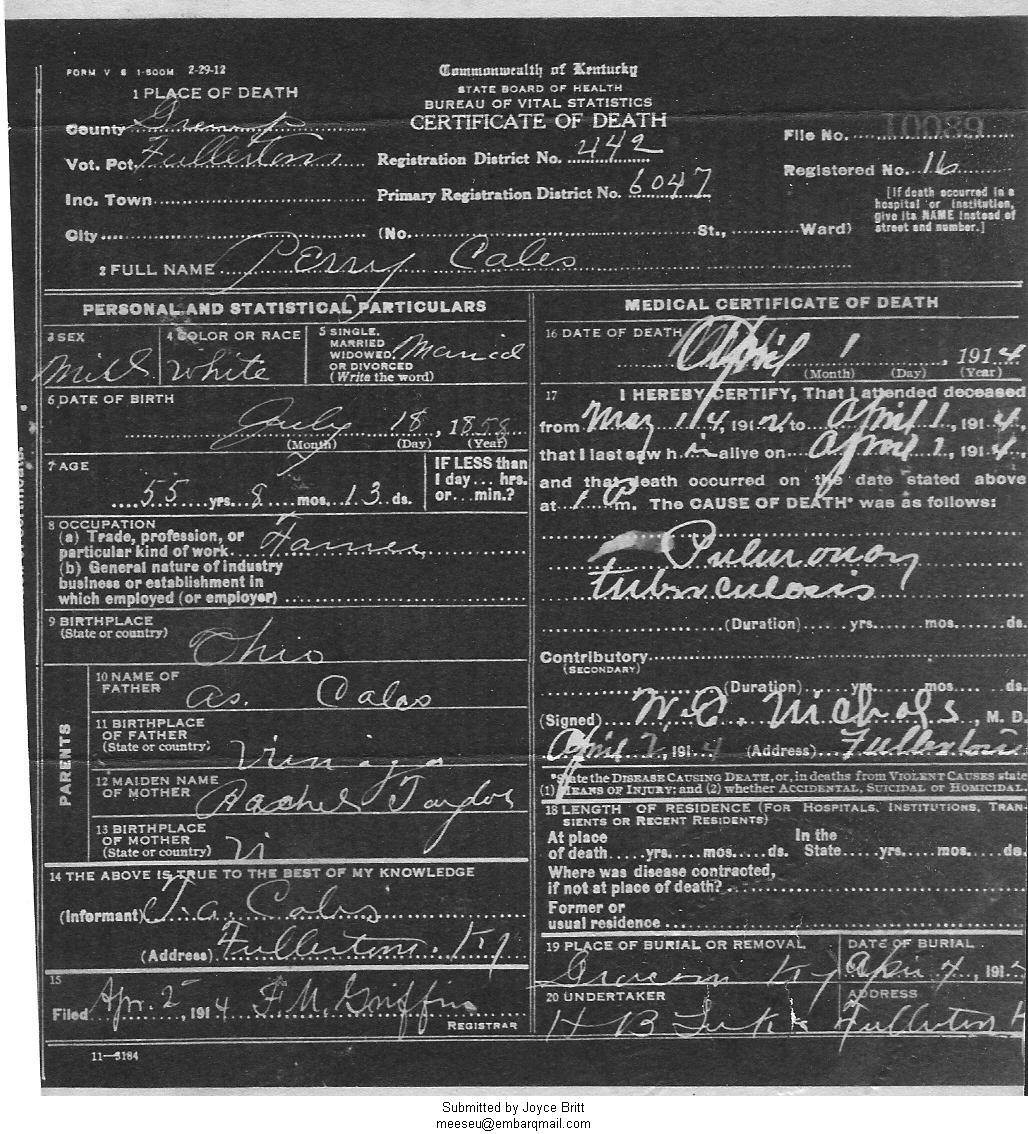 FORM V S 1-500M 2-29-12
Commonwealth of Kentucky
STATE BOARD OF HEALTH
BUREAU OF VITAL STATISTICS
CERTIFICATE OF DEATH
1 PLACE OF DEATH
County Greenup
Vot. Pct. Fullerton
Inc. Town
City
Registration District No. 442
Primary Registration District No. 6047
(No. St., Ward)
File No. 10089
Registered No. 16
[If death occurred in a
hospital or institution,
give its NAME instead of
street and number.]
2 FULL NAME Perry Cales
PERSONAL AND STATISTICAL PARTICULARS
3 SEX
4 COLOR OR RACE
White
5 SINGLE,
MARRIED
WIDOWED.
OR DIVORCED
(Write the word)
6 DATE OF BIRTH
July 18, 1858
(Month) (Day) (Year)
7 AGE
55 yrs. 8 mos. 13 ds.
IF LESS than
1 day... hrs.
or... min.?
8 OCCUPATION
(a) Trade, profession, or
particular kind of work Farmer
(b) General nature of industry
business or establishment in
which employed (or employer)
9 BIRTHPLACE
(State or country)
Ohio
PARENTS
10 NAME OF
FATHER
As. Cales
11 BIRTHPLACE
OF FATHER
(State or country)
12 MAIDEN NAME
OF MOTHER
Rachel Taylor
13 BIRTHPLACE
OF MOTHER
(State or country)
14 THE ABOVE IS TRUE TO THE BEST OF MY KNOWLEDGE
(Informant) Cales
(Address) Fullerton. Ky
15
Filed Apr. 2, 1914 F M. Griffin
REGISTRAR
11-3184
MEDICAL CERTIFICATE OF DEATH
16 DATE OF DEATH
April 1, 1914
(Month) (Day) (Year)
17 I HEREBY CERTIFY, That I attended deceased
from May 14, 1912 to April 1, 1914,
that I last saw h im alive on April 1, 1914,
and that death occurred on the date stated above
at 1 P m. The CAUSE OF DEATH* was as follows:
Pulmonary
tuberculosis
(Duration) yrs. mos. ds.
Contributory
(SECONDARY)
(Duration) yrs. mos. ds.
(Signed) W.C. Nichols, M. D.
April 2, 1914 (Address) Fullerton
*State the DISEASE CAUSING DEATH, or, in deaths from VIOLENT CAUSES state
(1) MEANS OF INJURY; and (2) whether ACCIDENTAL, SUICIDAL OR HOMICIDAL.
18 LENGTH OF RESIDENCE (FOR HOSPITALS, INSTITUTIONS, TRAN
SIENTS OR RECENT RESIDENTS)
At place In the
of death yrs. mos. ds. State yrs. mos. ds.
Where was disease contracted,
if not at place of death?
Former or
usual residence
19 PLACE OF BURIAL OR REMOVAL
Ky
DATE OF BURIAL
4, 191
20 UNDERTAKER
H B
ADDRESS
Fullerton K
Submitted by Joyce Britt
meeseu@embarqmail.com